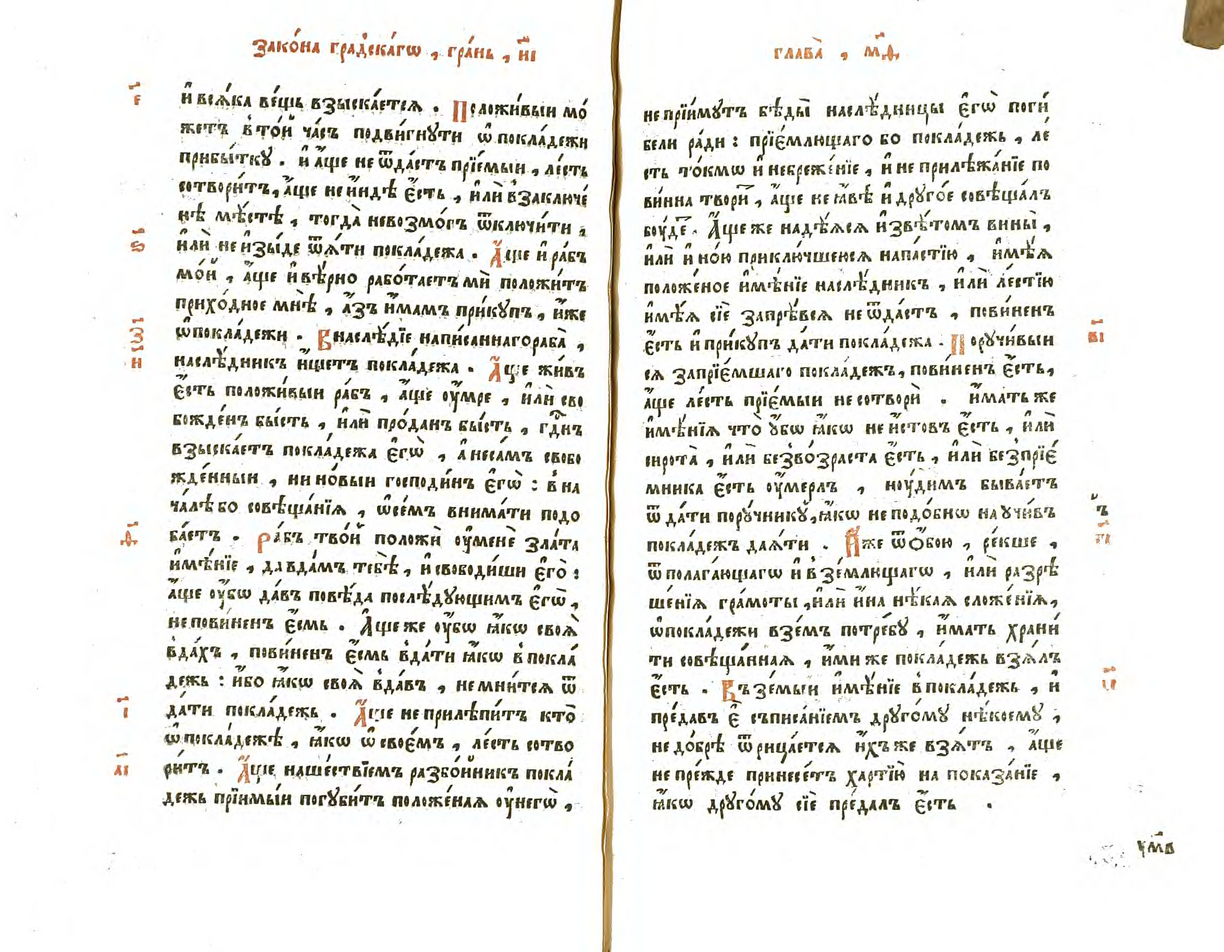 Зако́на гра́дскагѡ , гра́нь , и҃і
е҃
и҆ вся́ка ве́щь взыска́ется . Положи́выи мо́
жетъ в то́й ча́съ подви́гнути ѡ҆ покла́дежи
прибы́тку . и҆ а҆́ще не ѿда́стъ прїе́мыи , ле́сть
сотвори́тъ, а҆́ще не и҆́ндѣ є҆́сть , и҆лѝ в заключе́
нѣ мѣ́стѣ , тогда̀ невозмо́гъ ѿключи́ти ,
ѕ҃
и҆лѝ не и҆зы́де ѿя́ти покла́дежа . А҆́ще и҆ ра́бъ
мо́й , а҆́ще и҆ вѣ́рно рабо́таетъ мѝ положи́тъ
прихо́дное мнѣ̀ , а҆́зъ и҆́мамъ при́купъ , и҆́же
з҃
ѡ҆ покла́дежи . В наслѣ́дїе написа́ннаго раба̀ ,
и҃
наслѣ́дникъ и҆́щетъ покла́дежа . А҆́ще жи́въ
є҆́сть положи́выи ра́бъ , а҆́ще ᲂу҆́мре , и҆лѝ сво
божде́нъ бы́сть , и҆лѝ про́данъ бы́сть , гдⷭ҇нъ
взыска́етъ покла́дежа є҆гѡ̀ , а҆ не са́мъ свобо
жде́нныи , ни но́выи господи́нъ є҆гѡ̀ : в на
ча́лѣ бо совѣща́нїѧ , ѡ҆ се́мъ внима́ти подо
ѳ҃
ба́етъ . Ра́бъ тво́й положѝ ᲂу҆ менѐ зла́та
и҆мѣ́нїе , да вда́мъ тебѣ̀ , и҆ свободи́ши є҆го̀ :
а҆́ще ᲂу҆́бѡ да́въ повѣ́да послѣ́дующимъ є҆гѡ̀ ,
не пови́ненъ є҆́смь . А҆́ще же ᲂу҆́бѡ ꙗ҆́кѡ своѧ̀
вда́хъ , пови́ненъ є҆́смь вда́ти ꙗ҆́кѡ в покла́
дежь : и҆́бо ꙗ҆́кѡ своѧ̀ вда́въ , не мни́тся ѿ
і҃
да́ти покла́дежь . А҆́ще не прилѣпи́тъ кто̀
ѡ҆ покла́дежѣ , ꙗ҆́кѡ ѡ҆ свое́мъ , ле́сть сотво
а҃і
ри́тъ . А҆́ще наше́ствїемъ разбо́йникъ покла́
дежь прїи́мыи погуби́тъ поло́женаѧ ᲂу҆ негѡ̀ ,
глава̀ , м҃ѳ
не прїи́мутъ бѣды̀ наслѣ́дницы є҆гѡ̀ поги́
бели ра́ди : прїе́млющаго бо покла́дежь , ле́
сть то́кмѡ и҆ небреже́нїе , и҆ не прилѣжа́нїе по
ви́нна твори́т , а҆́ще не ꙗ҆́вѣ и҆ друго́е совѣща́лъ
бꙋ́де . А҆́ще же надѣ́ѧсѧ и҆звѣ́томъ вины̀ ,
и҆лѝ и҆но́ю приклю́чшеюсѧ напа́стїю , и҆мѣ́ѧ
поло́женое и҆мѣ́нїе наслѣ́дникъ , и҆лѝ ле́стїю
и҆мѣ́ѧ сїѐ запрѣ́всѧ не ѿда́стъ , пови́ненъ
в҃і
є҆́сть и҆ при́купъ да́ти покла́дежа . Поручи́выи
сѧ запрїе́мшаго покла́дежъ, пови́ненъ є҆́сть,
а҆́ще ле́сть прїе́мыи не сотворѝ . и҆́мать же
и҆мѣ́нїѧ что̀ ᲂу҆́бѡ ꙗ҆́кѡ не и҆́стовъ є҆́сть , и҆лѝ
сирота̀ , и҆лѝ без во́зраста є҆́сть , и҆лѝ без прїе́
мника є҆́сть ᲂу҆́мерлъ , ноу́димъ быва́етъ
ѿ да́ти пору́чнику, ꙗ҆́кѡ не подо́бнѡ научи́въ
г҃і
покла́дежъ даѧ́ти . А҆́же ѿ ѻ҆бою̀ , ре́кше ,
ѿ полага́ющагѡ и҆ взе́млющагѡ , и҆лѝ разрѣ
ше́нїѧ гра́моты , и҆лѝ и҆́на нѣ́каѧ сложе́нїѧ,
ѡ҆ покла́дежи взе́мъ потре́бу , и҆́мать храни́
ти совѣща́ннаѧ , и҆́ми же покла́дежь взѧ́лъ
д҃і
є҆́сть . Въ зе́мыи и҆мѣ́нїе в покла́дежь , и҆
преда́въ є҆̀ съписа́нїемъ друго́му нѣ́коему ,
не до́брѣ ѿрица́ется и҆́хъ же взѧ́тъ , а҆́ще
не пре́жде принесе́тъ ха́ртїю на показа́нїе ,
ꙗ҆́кѡ друго́му сїѐ пре́далъ є҆́сть .
ум҃в